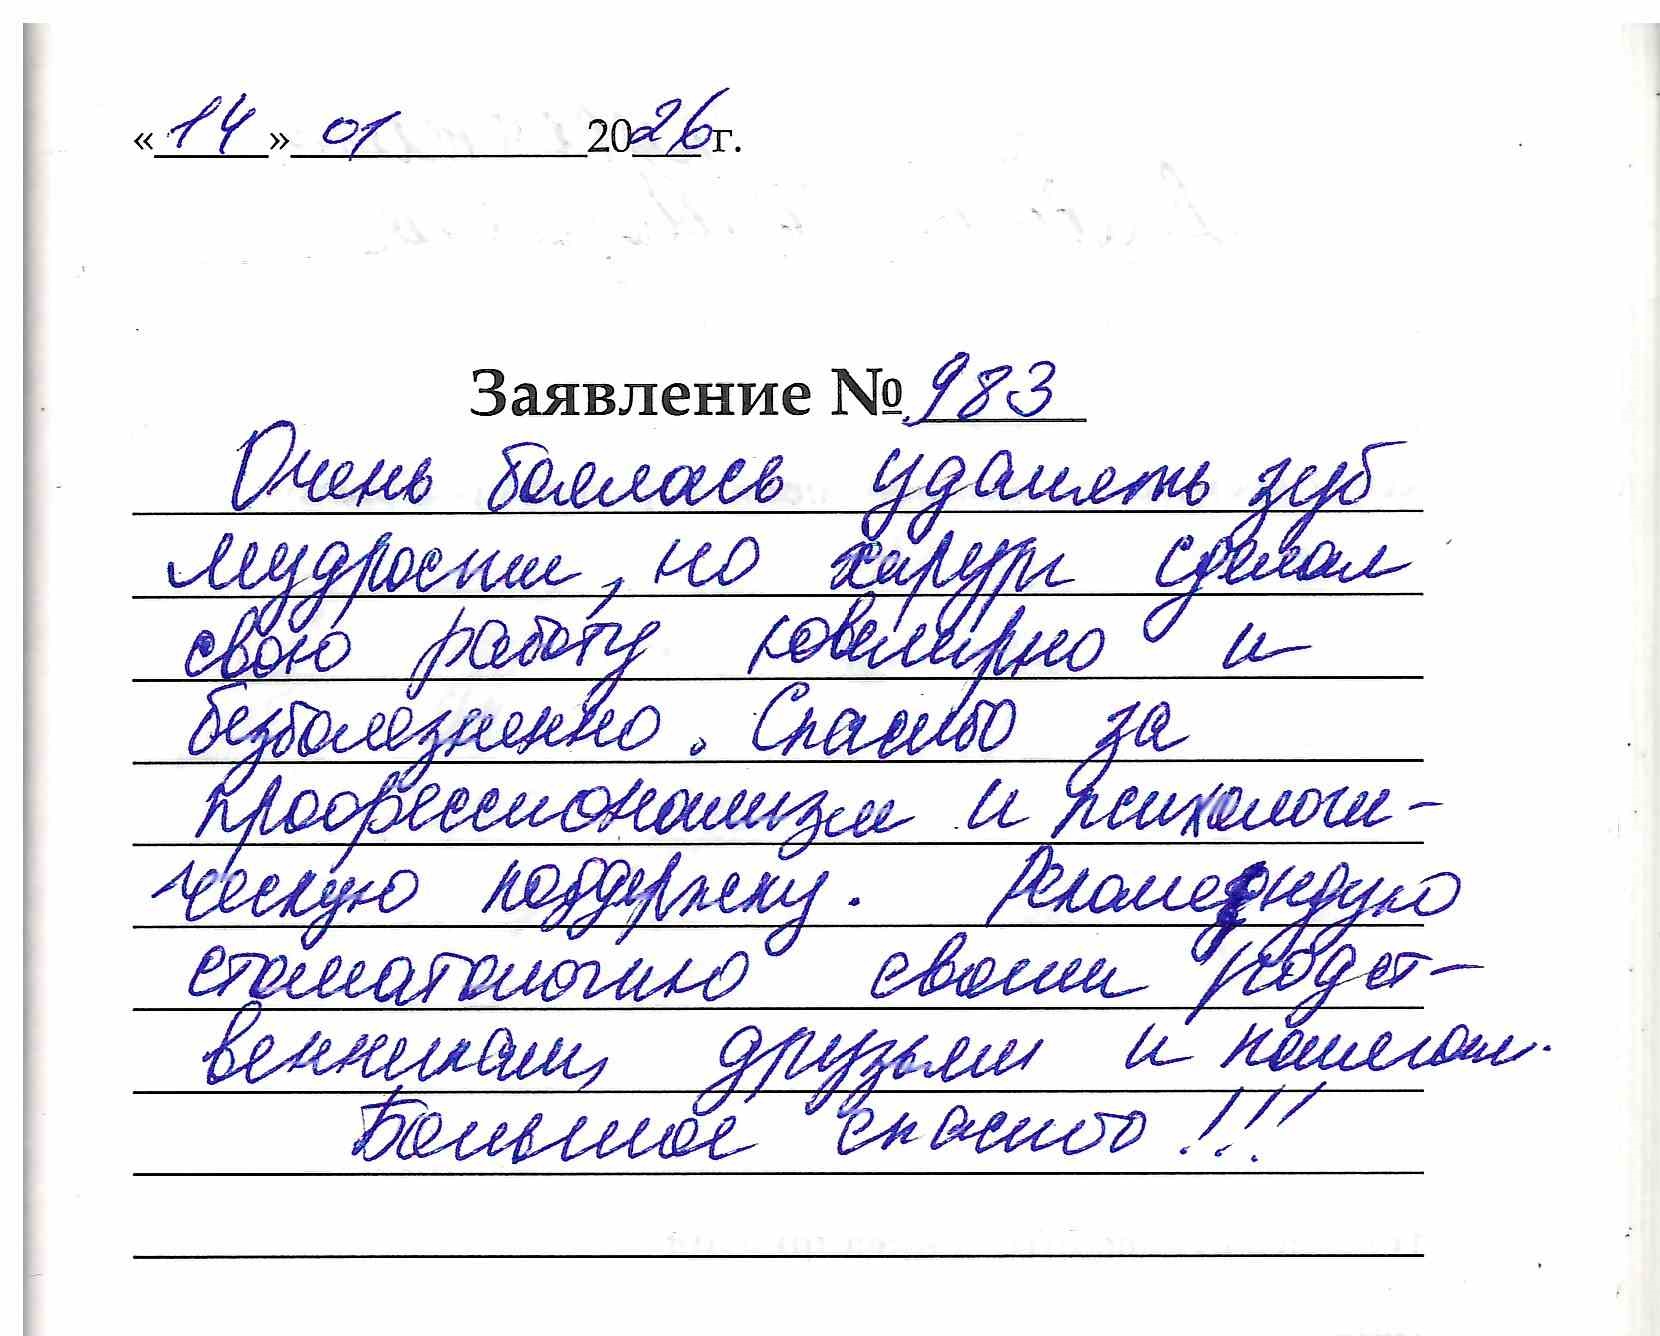 «14» 01 2026 г.
Заявление № 983
Очень боялась удалять зуб
мудрости, но хирург сделал
свою работу ювелирно и
безболезненно. Спасибо за
профессионализм и психологи-
ческую поддержку. Рекомендую
стоматологию своим родст-
венникам, друзьям и коллегам.
Большое спасибо!!!